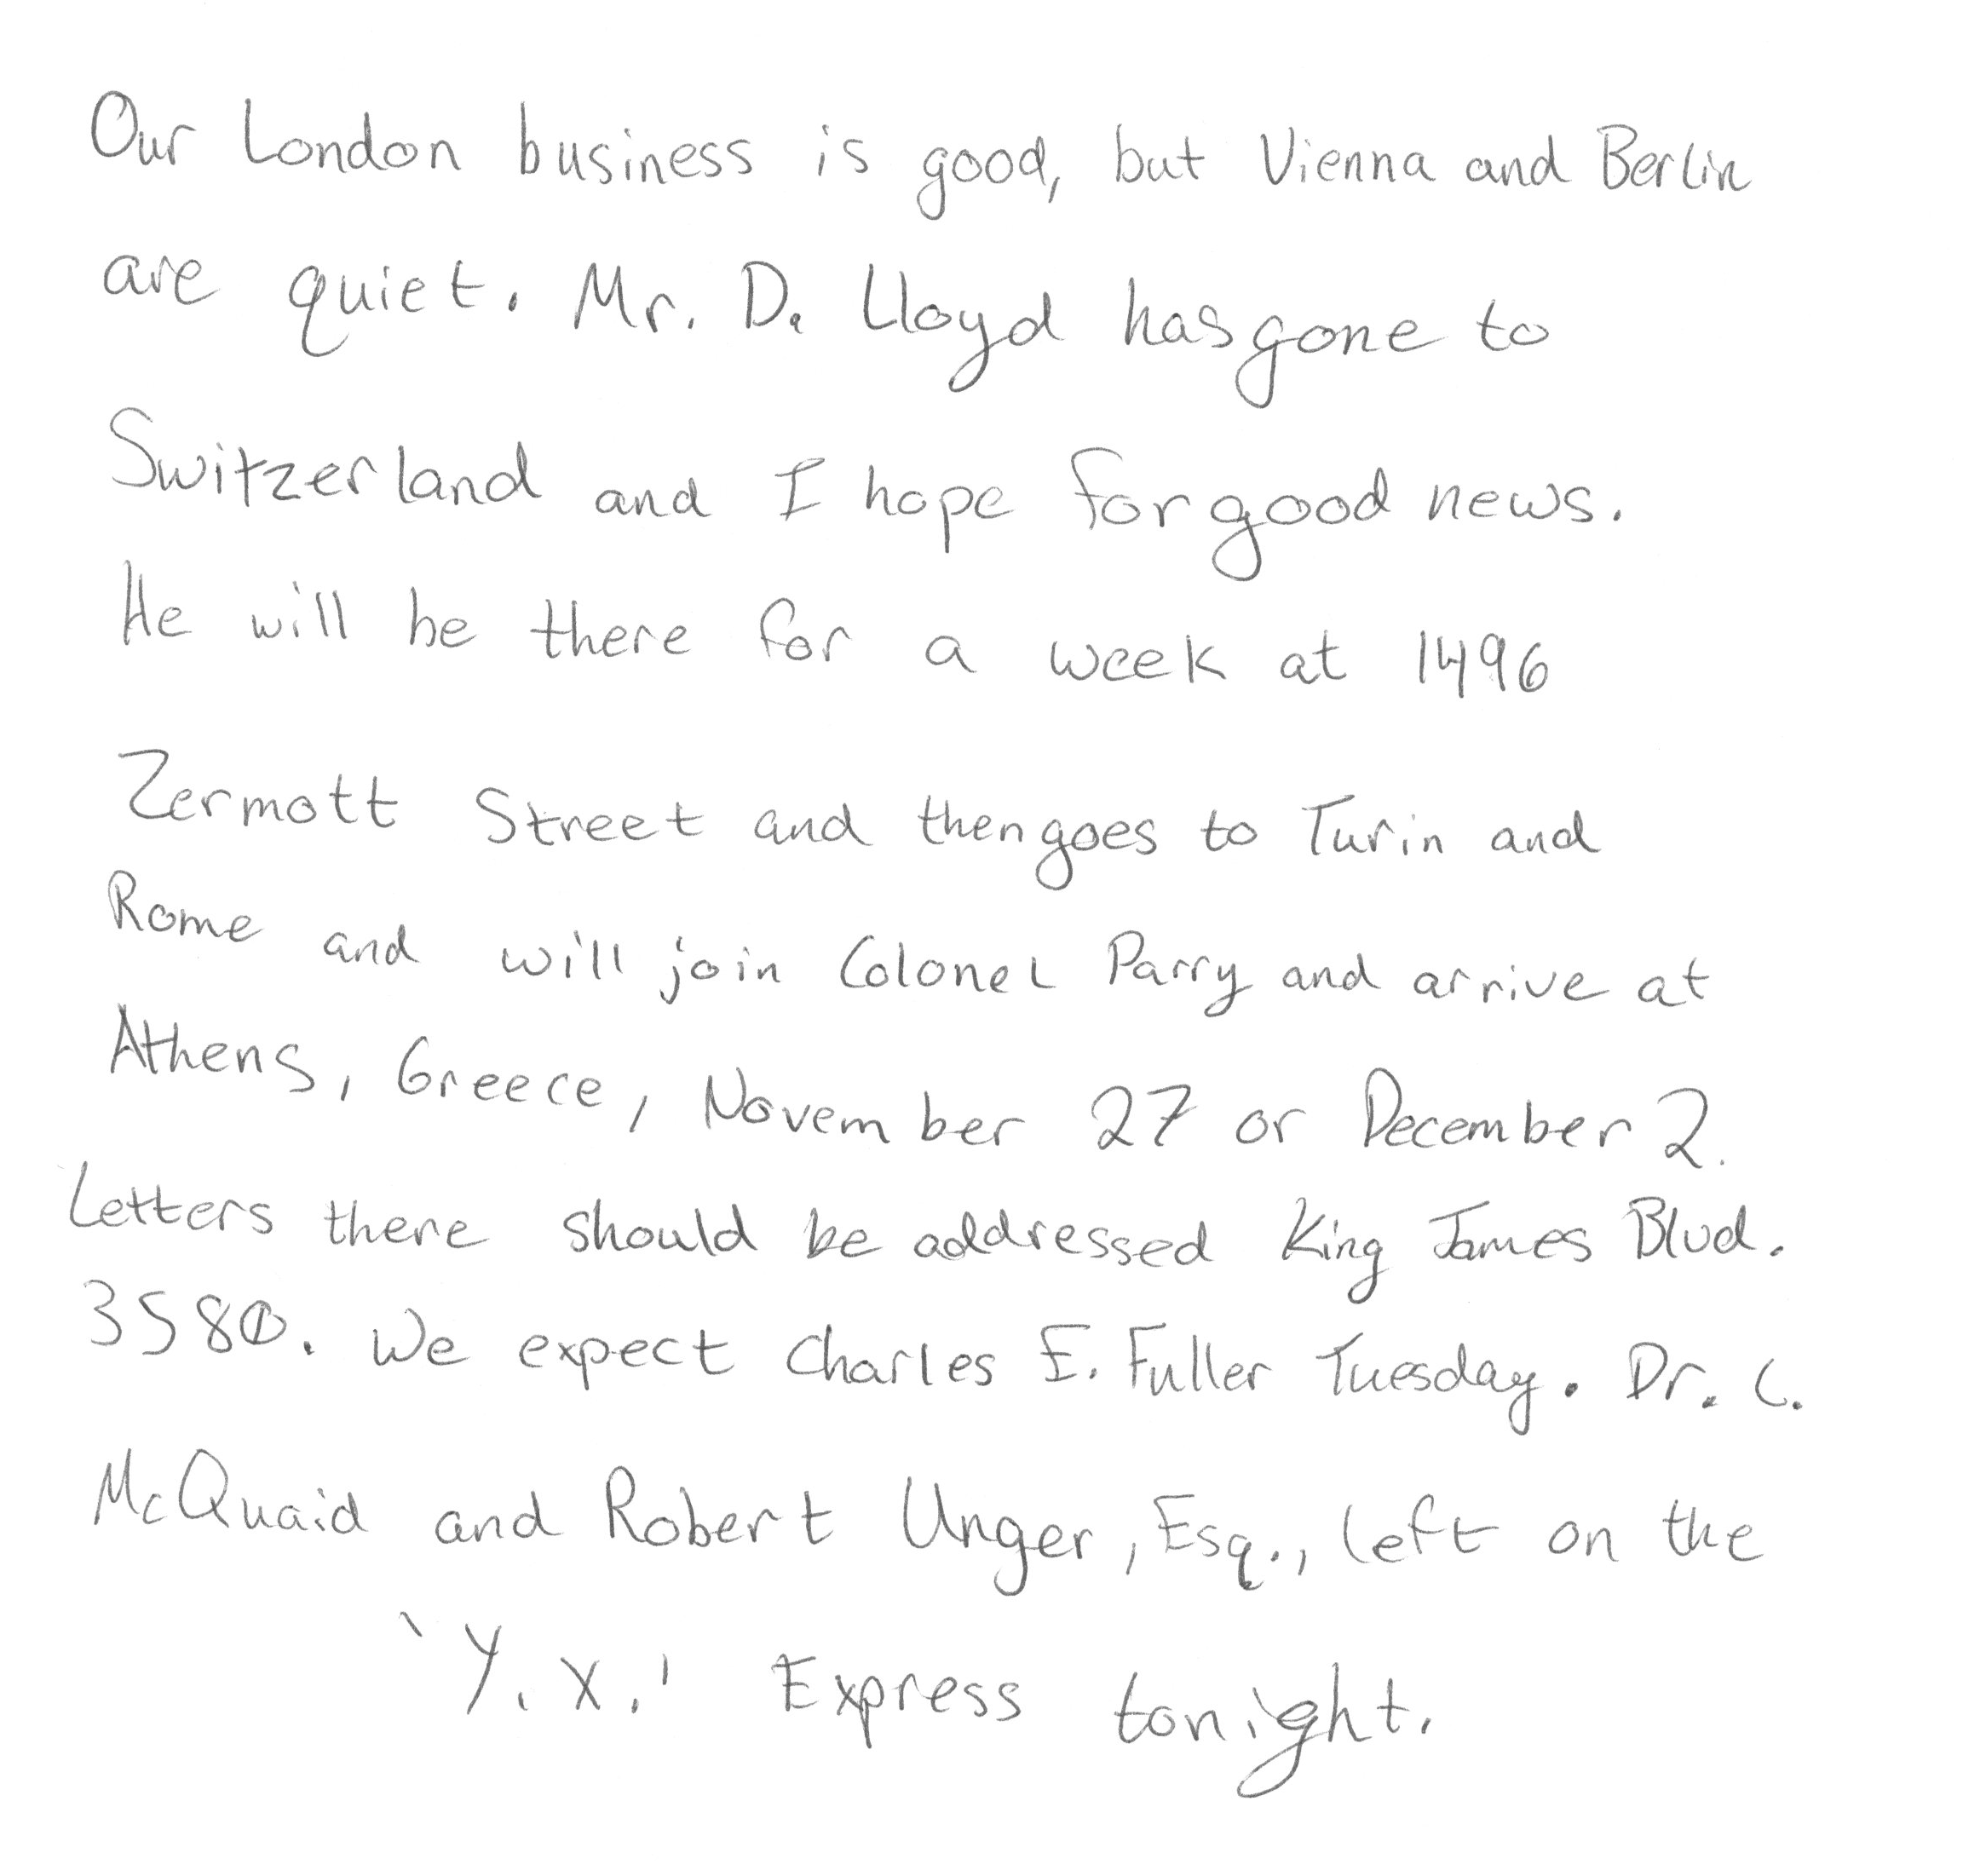 Our London business is good, but Vienna and Berlin
are quiet. Mr. D. Lloyd has gone to
Switzerland and I hope for good news.
He will be there for a week at 1496
Zermott Street and then goes to Turin and
Rome and will join Colonel Parry and arrive at
Athens, Greece, November 27 or December 2.
Letters there should be addressed King James Blvd.
3580. We expect Charles E. Fuller Tuesday. Dr. C.
McQuaid and Robert Unger, Esq., left on the
'Y.X.' Express tonight.